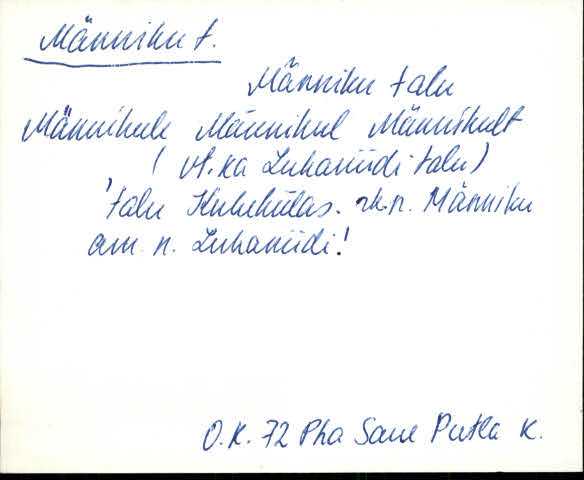 Männiku t.
Männiku talu
Männikule Männikul Männikult
( vt. ka Luhaniidi talu)
'talu Kuhekülas. rk.n. Männiku
am. n. Luhaniidi!
O.K. 72 Pha Saue Putla k.